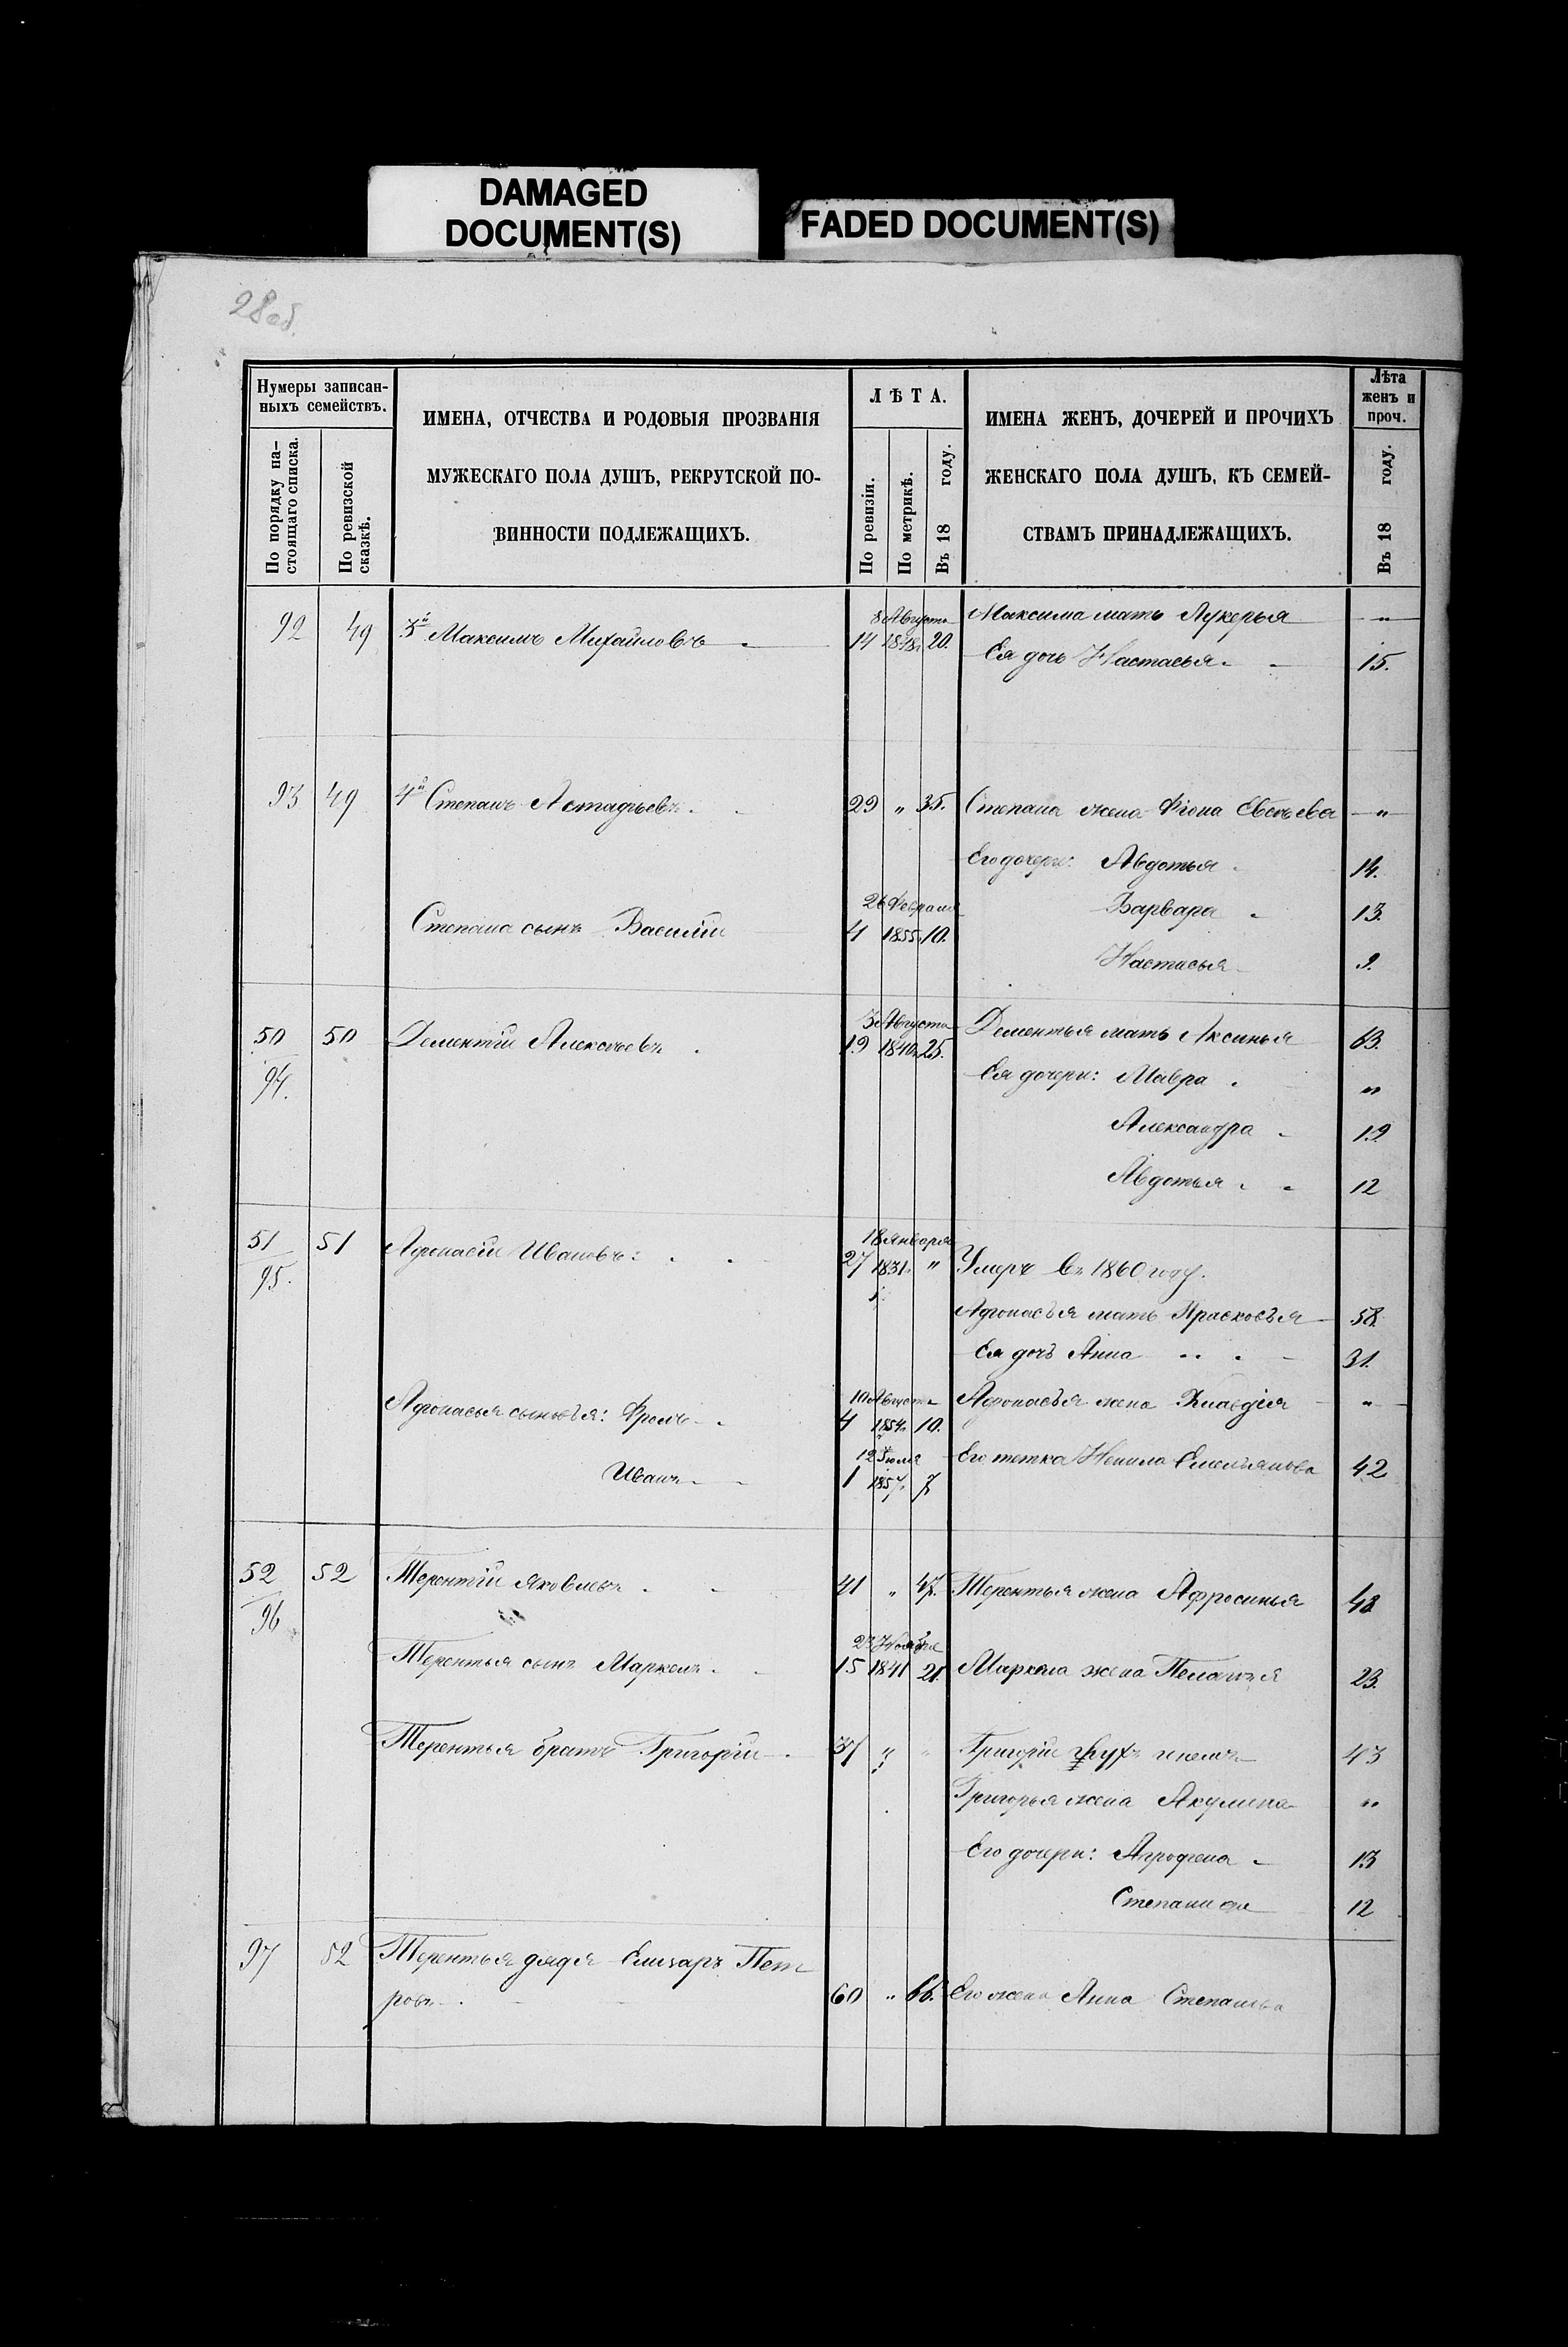 DAMAGED
DOCUMENT(S)
FADED DOCUMENT(S)
28об.
Нумеры записан-
ныхъ семействъ.
По порядку на-
стоящаго списка.
По ревизской
сказкѣ.
ИМЕНА, ОТЧЕСТВА И РОДОВЫЯ ПРОЗВАНІЯ
МУЖЕСКАГО ПОЛА ДУШЪ, РЕКРУТСКОЙ ПО-
ВИННОСТИ ПОДЛЕЖАЩИХЪ.
ЛѢТА.
По ревизіи.
По метрикѣ.
Въ 18 году.
ИМЕНА ЖЕНЪ, ДОЧЕРЕЙ И ПРОЧИХЪ
ЖЕНСКАГО ПОЛА ДУШЪ, КЪ СЕМЕЙ-
СТВАМЪ ПРИНАДЛЕЖАЩИХЪ.
Лѣта
женъ и
проч.
Въ 18 году.
8 Августа Максима мать Лукерья "
92 49 3й Максимъ Михайловъ 14 1848 20.
Ея дочь Настасья 15.
93 49 4й Степанъ Астафьевъ 29 " 35. Степана жена Фіона "
Его дочери: Авдотья 14.
26 Февраля Варвара 13.
Степана сынъ Василій 4 1855 10.
Настасья 9.
3 Августа Дементья мать Аксинья 63.
50 50 Дементій Алексѣевъ 19 1840 25.
94. Ея дочери: Мавра "
Александра 19
Авдотья 12
18 января
51 51 Афонасій Ивановъ: 27 1831 " Умеръ въ 1860 году.
95.
Афонасья мать Прасковья 58.
Ея дочь Анна 31.
10 Августа Афонасья жена Клавдія "
Афонасья сыновья: Фролъ 4 1854 10.
12 Іюля Его тетка Ненила Емельянова 42
Иванъ 1 1857 7
52 52 Терентій Яковлевъ 41 " 47. Терентья жена Афросинья 48
96
23 Ноября
Терентья сынъ Маркелъ 15 1841 21. Маркела жена Пелагея 23.
Терентья братъ Григорій 37 " " Григорій 43
Григорья жена Акулина "
Его дочери: Аграфена 13
Степанида 12
97 52 Терентья дядя Елизаръ Пет
ровъ 60 " 66. Его жена Анна Степанова